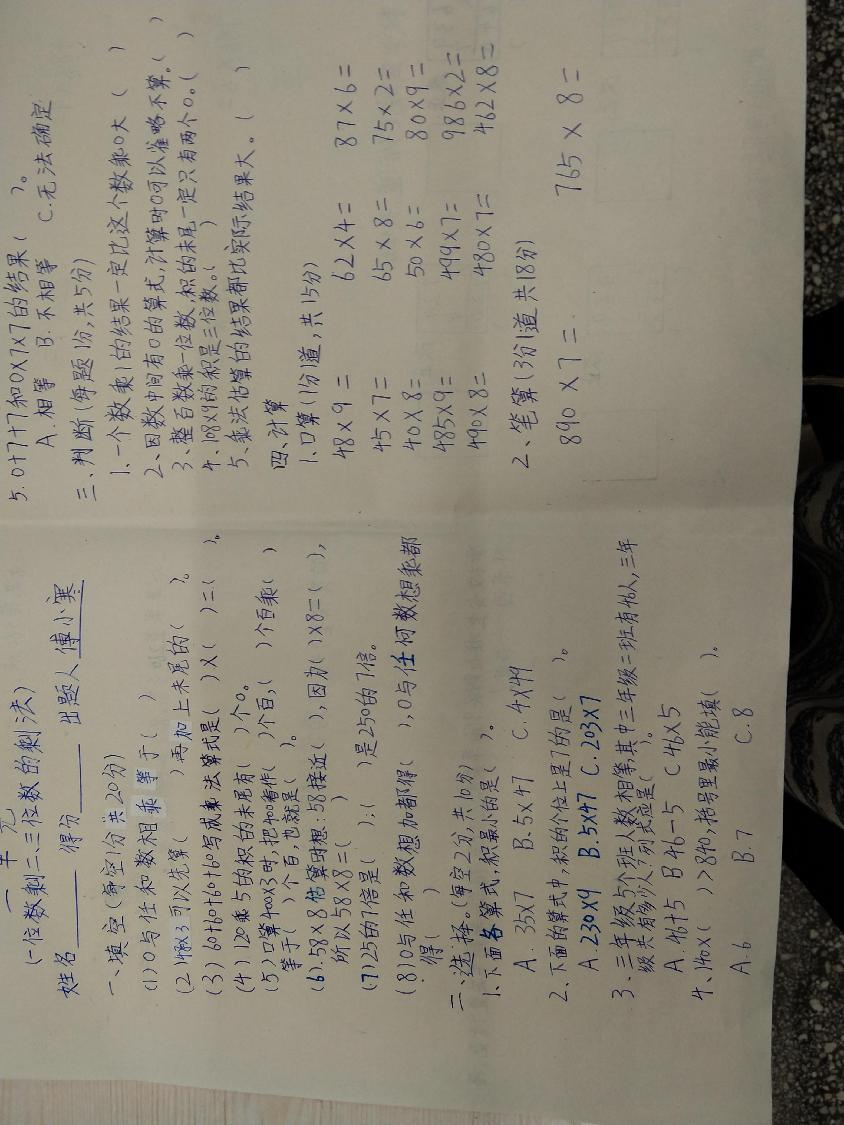 一单元
(一位数剩二三位数的剩法)
姓名______ 得分______ 出题人 傅小寒
一、填空(每空1分共20分)
(1)0与任和数相乘等于( )
(2) 可以先算( )再加上末尾的( )。
(3)60+60+60+60写成乘法算式是( )×( )=( )。
(4)120乘5的积的末尾有( )个0。
(5)口算400×3时,把400看作( )个百,( )个百乘( )
等于( )个百,也就是( )。
(6).58×8估算时想:58接近( ),因为( )×8=( ),
所以58×8=( )
(7)25的7倍是( );( )是250的7倍。
(8)0与任和数想加都得( ),0与任何数想乘都
得( )
二、选择。(每空2分,共10分)
1.下面各算式,积最小的是( )。
A. 35×7 B.5×47 C.4×49
2、下面的算式中,积的个位上是7的是( )。
A 230×9 B.5×47 C.203×7
3.三年级5个班人数相等,其中三年级二班有46人,三年
级共有多少人?列式应是( )。
A 46+5 B 46-5 C 46×5
4、140×( )>840,括号里最小能填( )。
A.6 B.7 C.8
5.0+7+7和0×7×7的结果( )。
A.相等 B.不相等 C.无法确定
三、判断(每题1分,共5分)
1、一个数乘1的结果一定比这个数乘0大 ( )
2、因数中间有0的算式,计算时0可以省略不算。( )
3、整百数乘一位数,积的末尾一定只有两个0。( )
4、108×9的积是三位数。( )
5、乘法估算的结果都比实际结果大。( )
四、计算
1.口算(1分1道,共15分)
48×9= 62×4= 87×6=
45×7= 65×8= 75×2=
40×8= 50×6= 80×9=
485×9= 499×7= 986×2=
490×8= 480×7= 462×8=
2、笔算(3分1道 共18分)
890×7= 765×8=